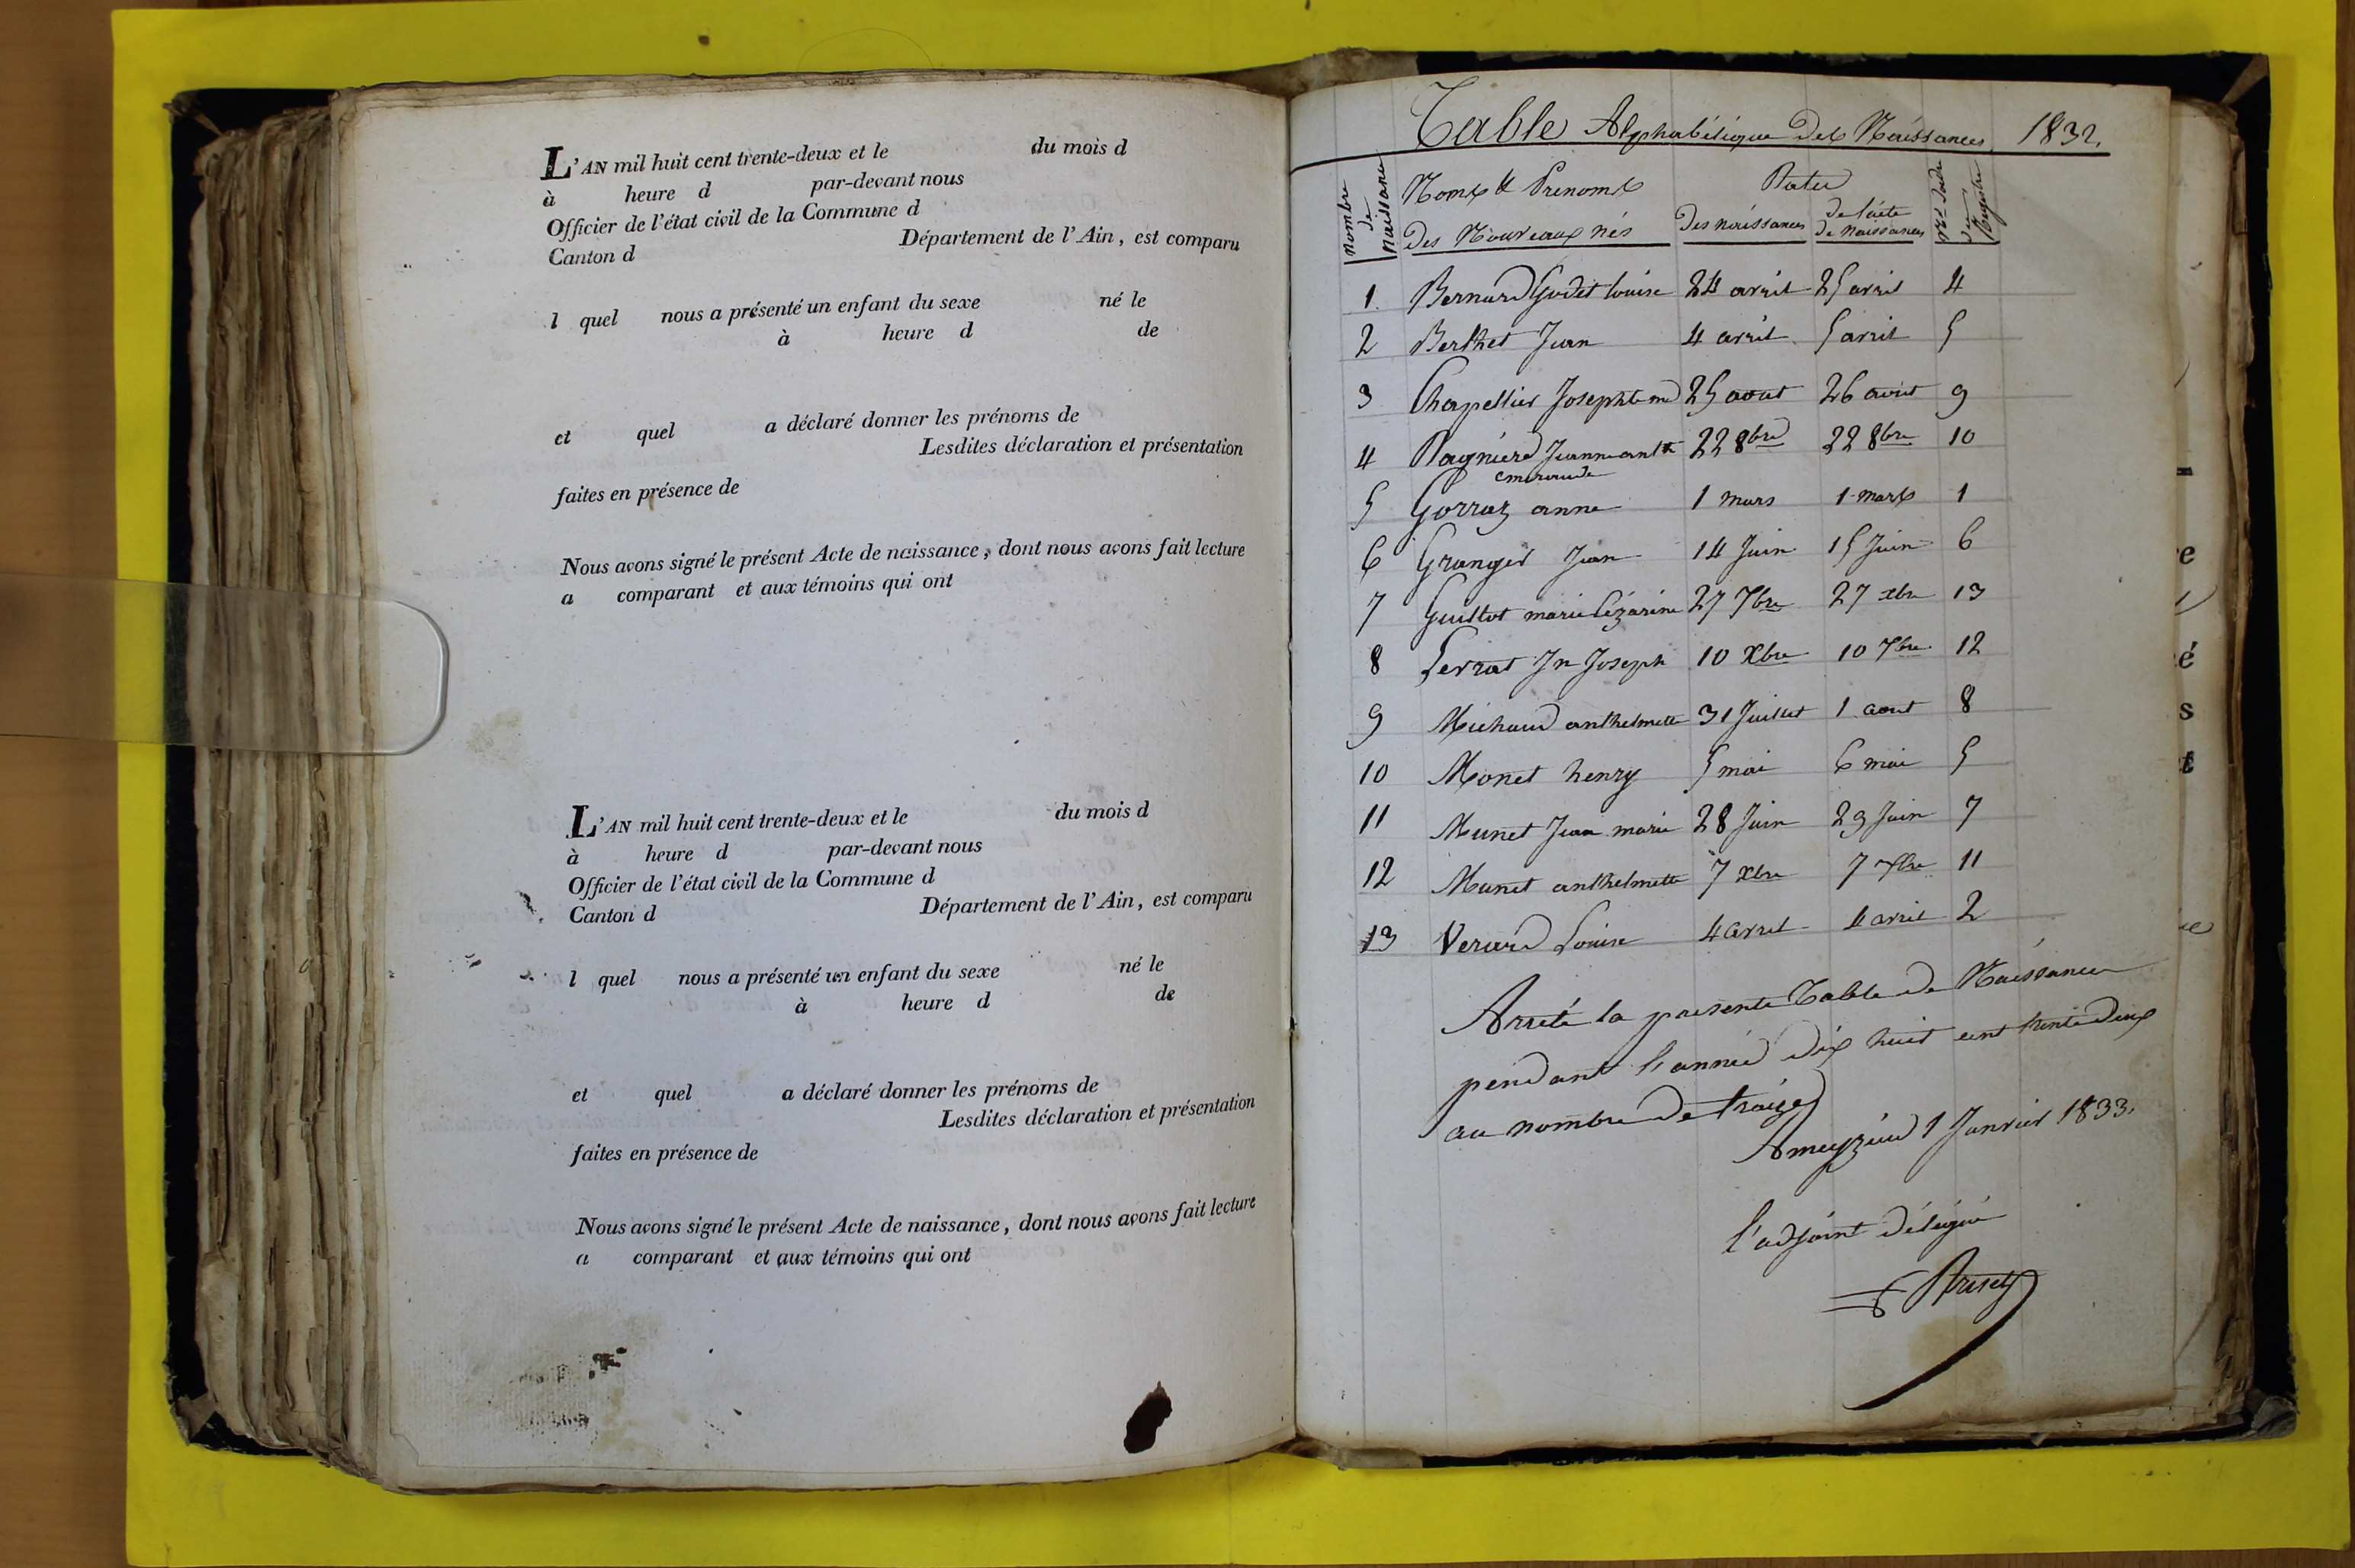 L'AN mil huit cent trente-deux et le du mois d
à heure d par-devant nous
Officier de l'état civil de la Commune d
Canton d Département de l'Ain, est comparu
l quel nous a présenté un enfant du sexe né le
à heure d de
et quel a déclaré donner les prénoms de
Lesdites déclaration et présentation
faites en présence de
Nous avons signé le présent Acte de naissance, dont nous avons fait lecture
a comparant et aux témoins qui ont
L'AN mil huit cent trente-deux et le du mois d
à heure d par-devant nous
Officier de l'état civil de la Commune d
Canton d Département de l'Ain, est comparu
l quel nous a présenté un enfant du sexe né le
à heure d de
et quel a déclaré donner les prénoms de
Lesdites déclaration et présentation
faites en présence de
Nous avons signé le présent Acte de naissance, dont nous avons fait lecture
a comparant et aux témoins qui ont
Table Alphabétique Des Naissances 1832.
Nombre de Naissance
Noms & Prenoms
des Nouveaux nés
Dates
des naissances
de l'acte de Naissances
1 Bernard Godet louise 24 avril 25 avril 4
2 Berthet Jean 4 avril 5 avril 5
3 Chapellier Joseph 25 aout 26 aout 9
4 Pagniere Jeanne ant 22 8bre 22 8bre 10
emeraude
5 Gorraz anne 1 mars 1 mars 1
6 Granger Jean 14 Juin 15 Juin 6
7 Guillot marie Cézarine 27 7bre 27 xbre 13
8 Serrat Jn Joseph 10 Xbre 10 7bre 12
9 Michaud anthelmette 31 Juillet 1 aout 8
10 Monet henry 5 mai 6 mai 5
11 Munet Jean marie 28 Juin 29 Juin 7
12 Munet anthelmette 7 xbre 7 xbre 11
13 Verard Louise 4 avril 4 avril 2
Arreté la presente Table de Naissance
pendant l'année dix huit cent trente deux
au nombre de traize
Ameyzieu 1 Janvier 1833.
l'adjoint délégué